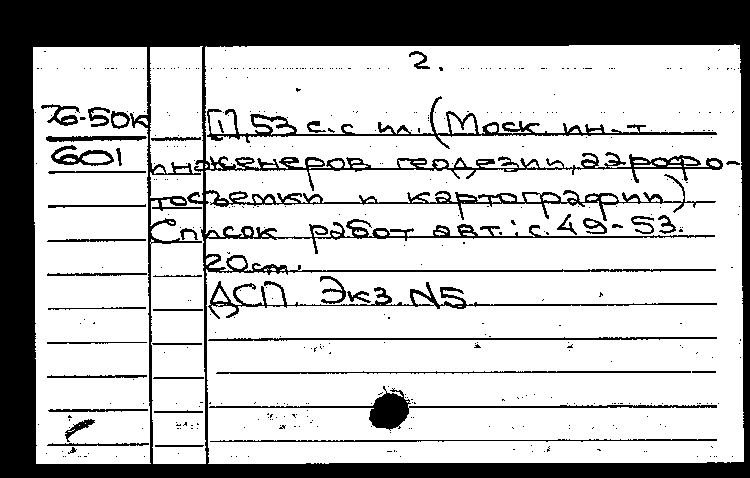 2.
76-50к [1], 53 с. с ил. (Моск. ин-т
601 инженеров геодезии, аэрофо-
тосъемки и картографии).
Список работ авт.: с. 49-53.
20 см.
ДСП. Экз. N5.